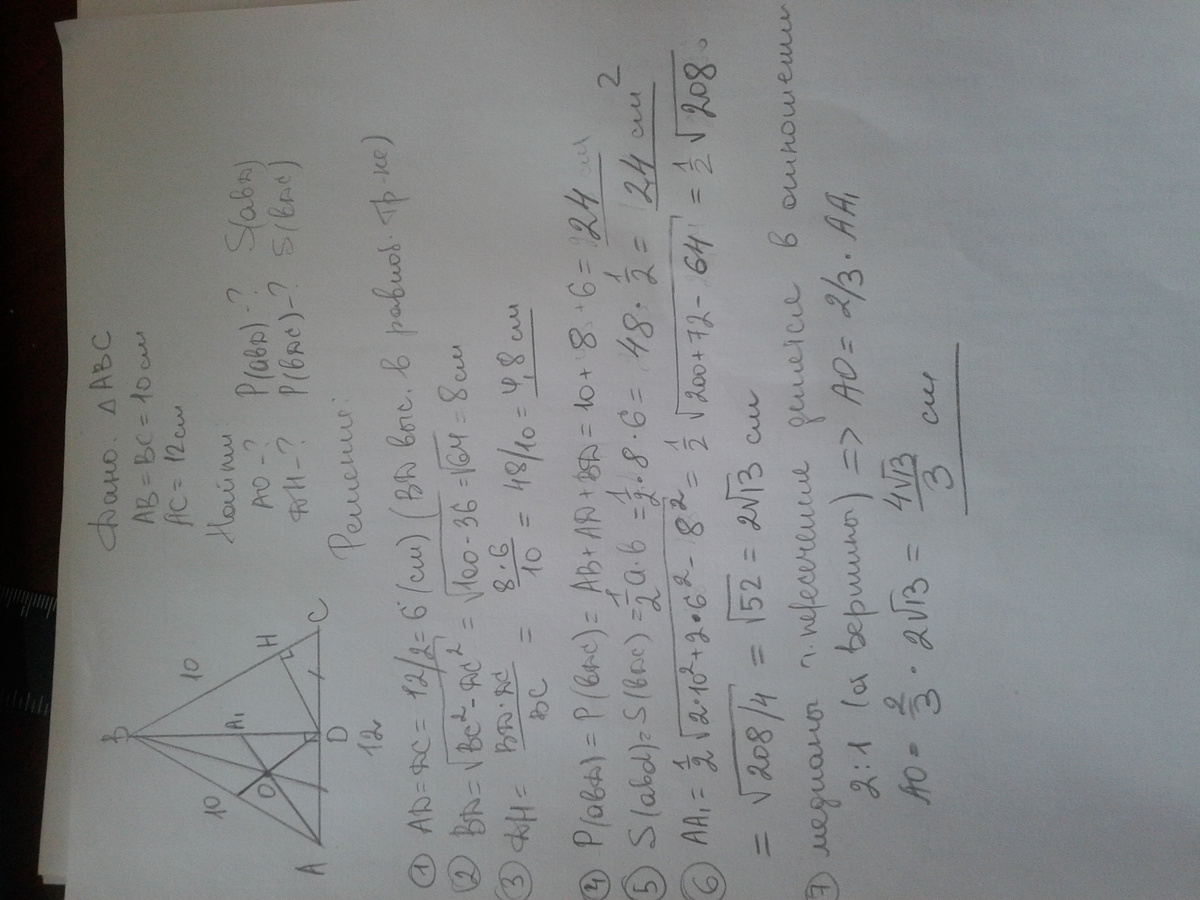 Дано: Δ ABC
AB = BC = 10 см
AC = 12 см
Найти:
AO - ? P(abd) - ? S(abd)
DH - ? P(bdc) - ? S(bdc)
Решение:
B
10 10
A₁
O
H
A D C
12
① AD = DC = 12/2 = 6 (см) (BD выс. в равноб. тр-ке)
② BD = √BC² - DC² = √100 - 36 = √64 = 8 см
③ DH = BD · DC / BC = 8 · 6 / 10 = 48/10 = 4,8 см
④ P(abd) = P(bdc) = AB + AD + BD = 10 + 8 + 6 = 24 см
⑤ S(abd) = S(bdc) = 1/2 a · b = 1/2 · 8 · 6 = 48 · 1/2 = 24 см²
⑥ AA₁ = 1/2 √2·10² + 2·6² - 8² = 1/2 √200 + 72 - 64 = 1/2 √208 =
= √208/4 = √52 = 2√13 см
⑦ медианы т. пересечения делятся в отношении
2:1 (от вершины) => AO = 2/3 · AA₁
AO = 2/3 · 2√13 = 4√13/3 см